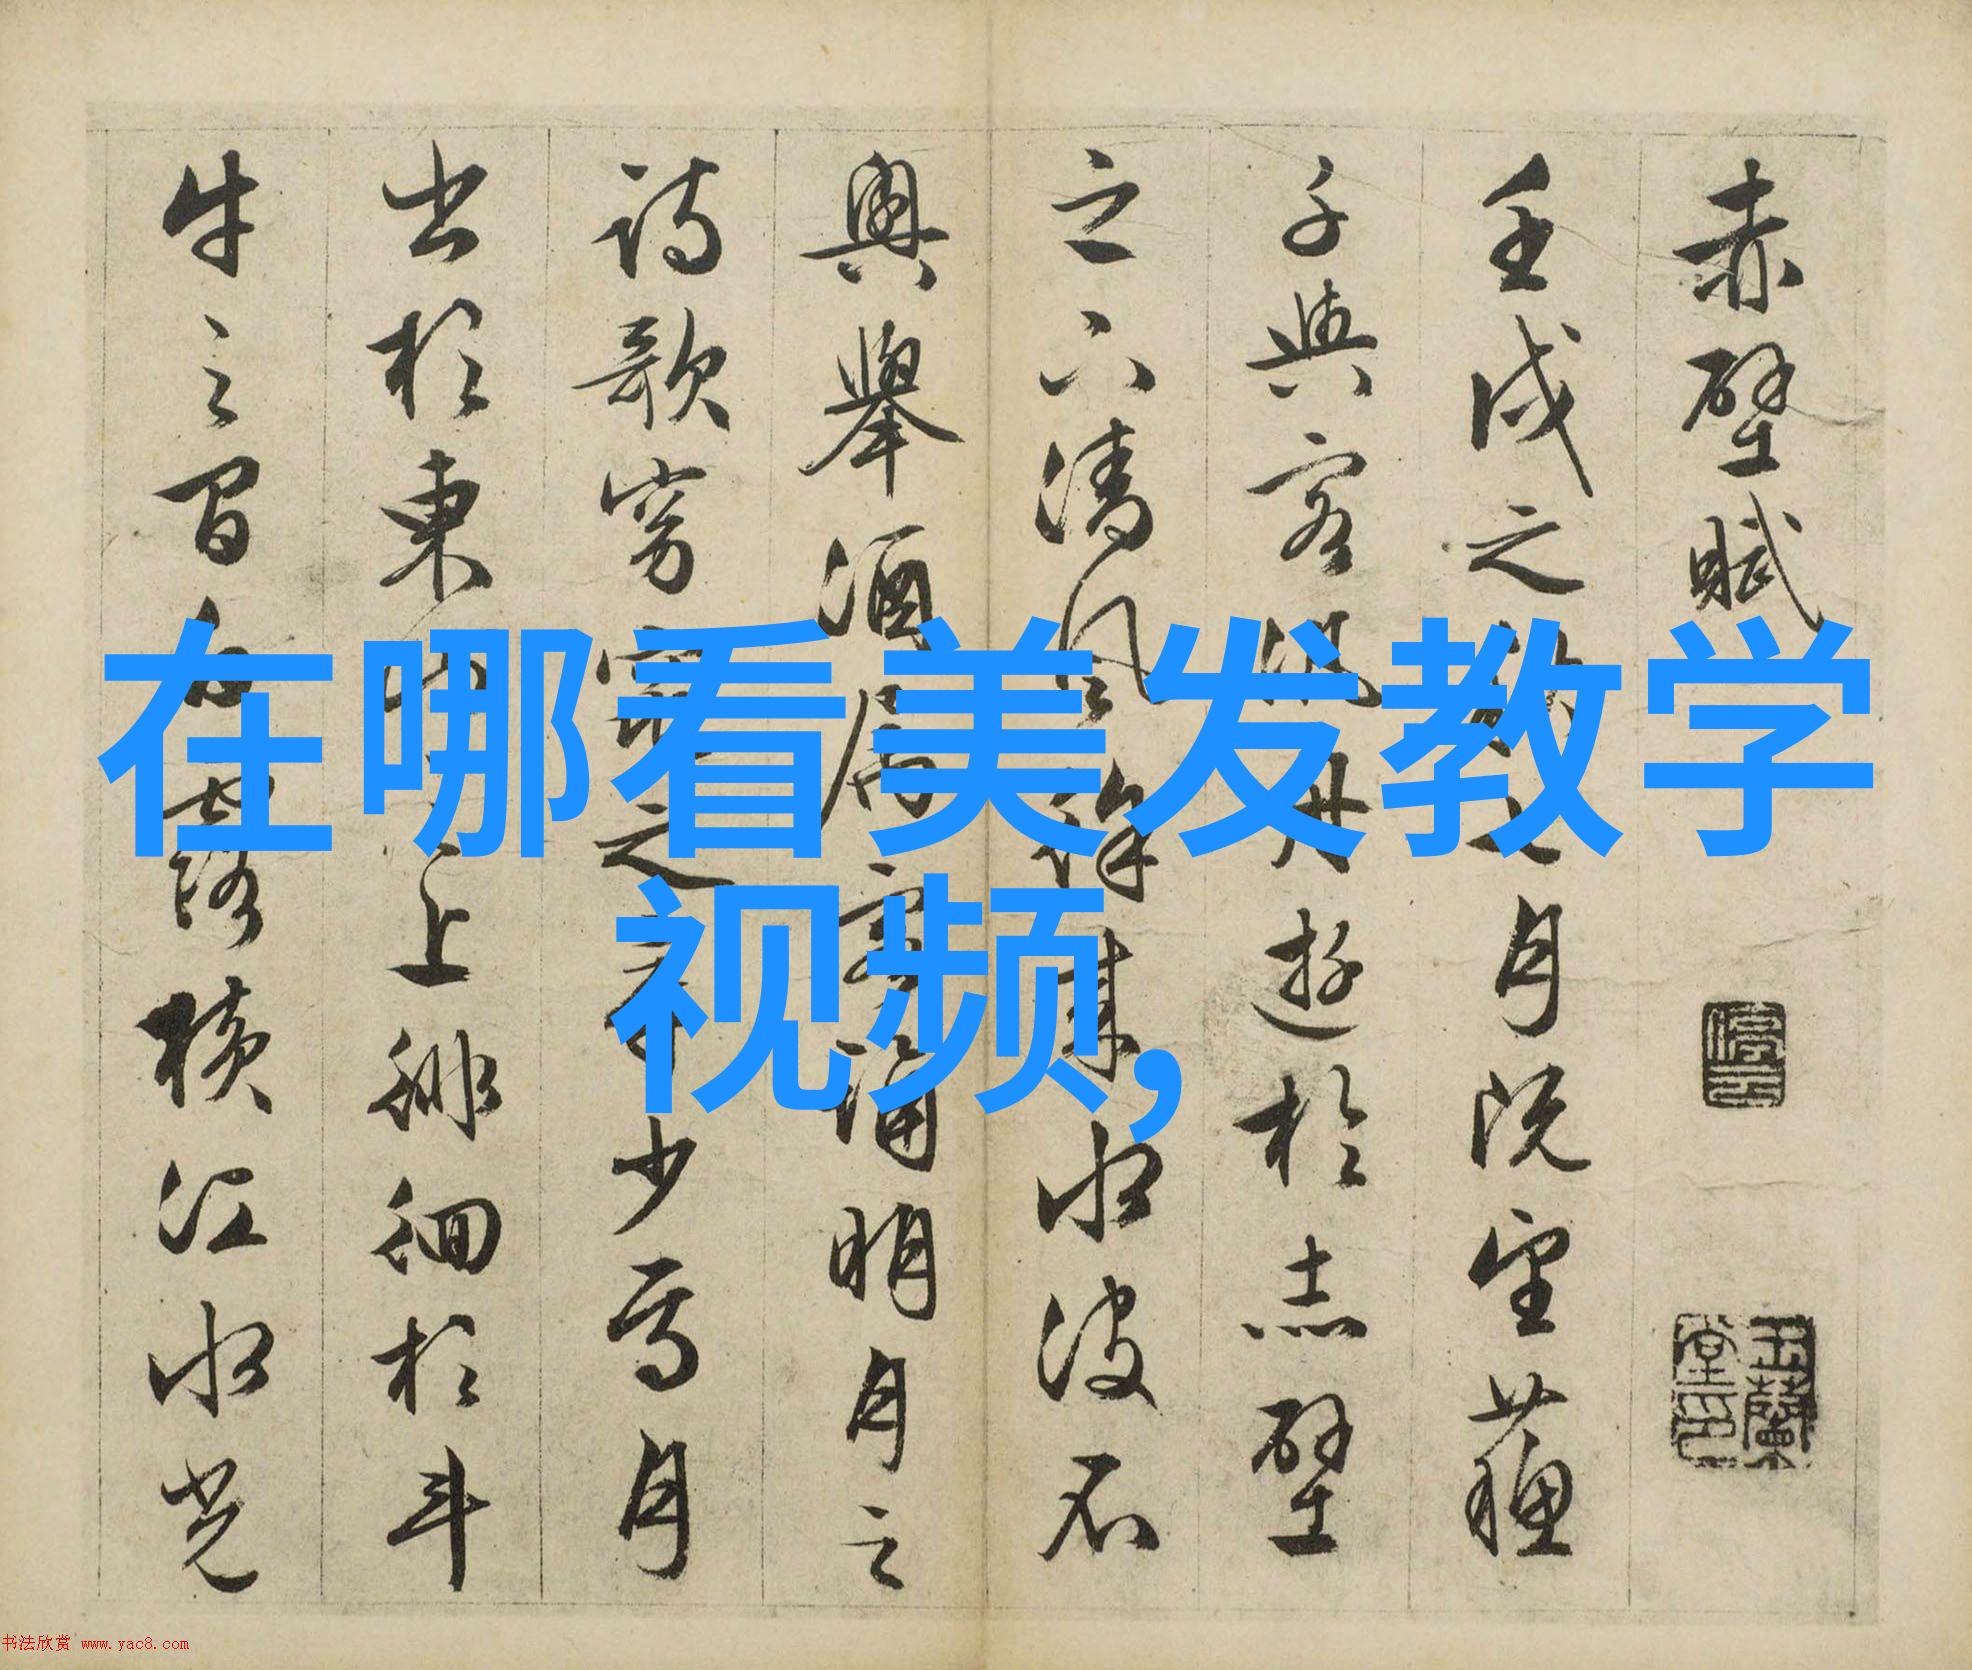 赤壁賦
壬戌之秋七月既望蘇
子與客泛舟遊於赤壁
之下清風徐來水波不
興舉酒屬客誦明月之
詩歌窈窕之章少焉月
出於東山之上徘徊於斗
牛之間白露橫江水光
玉蘭堂印
在哪看美发教学
视频,
书法欣赏 www.yac8.com